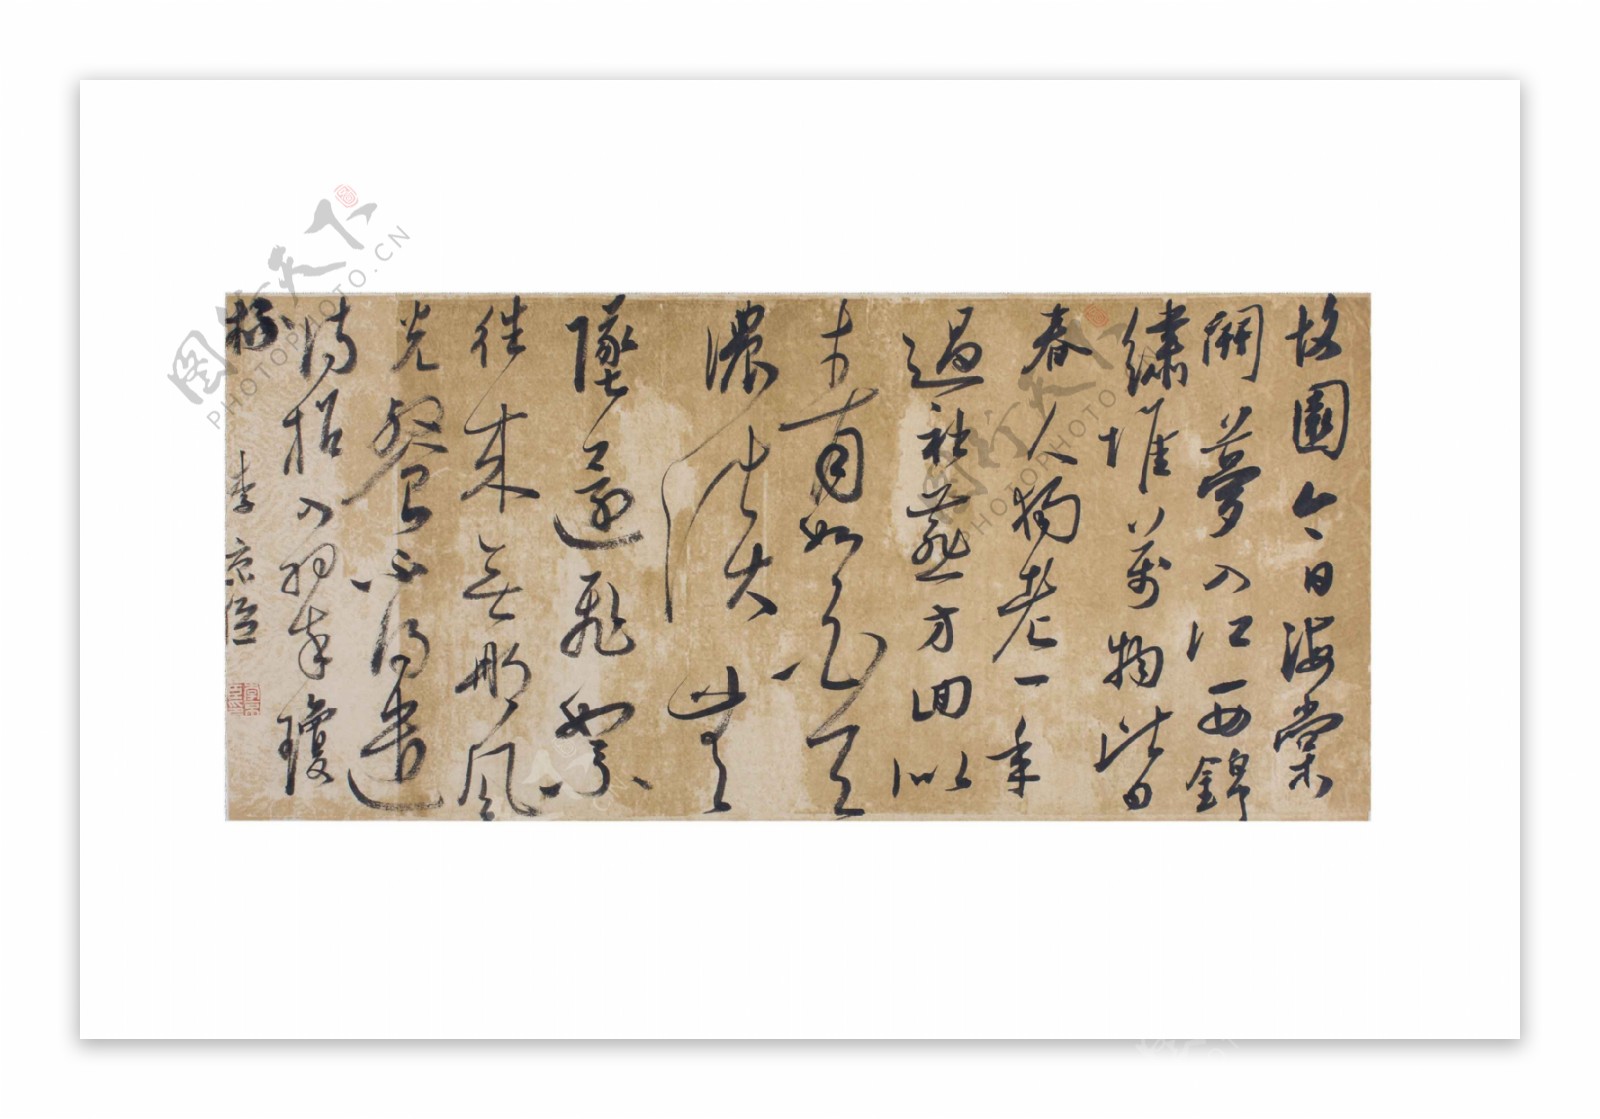 故園今日海棠
開夢入江西錦
繡堆萬物皆
春人獨老一年
過社燕方回似
青如白天
濃淡欲
墜還飛絮
往來無那風
光餐不得遣
詩招入翠瓊
杯
李
图行天下
PHOTOPHOTO.CN